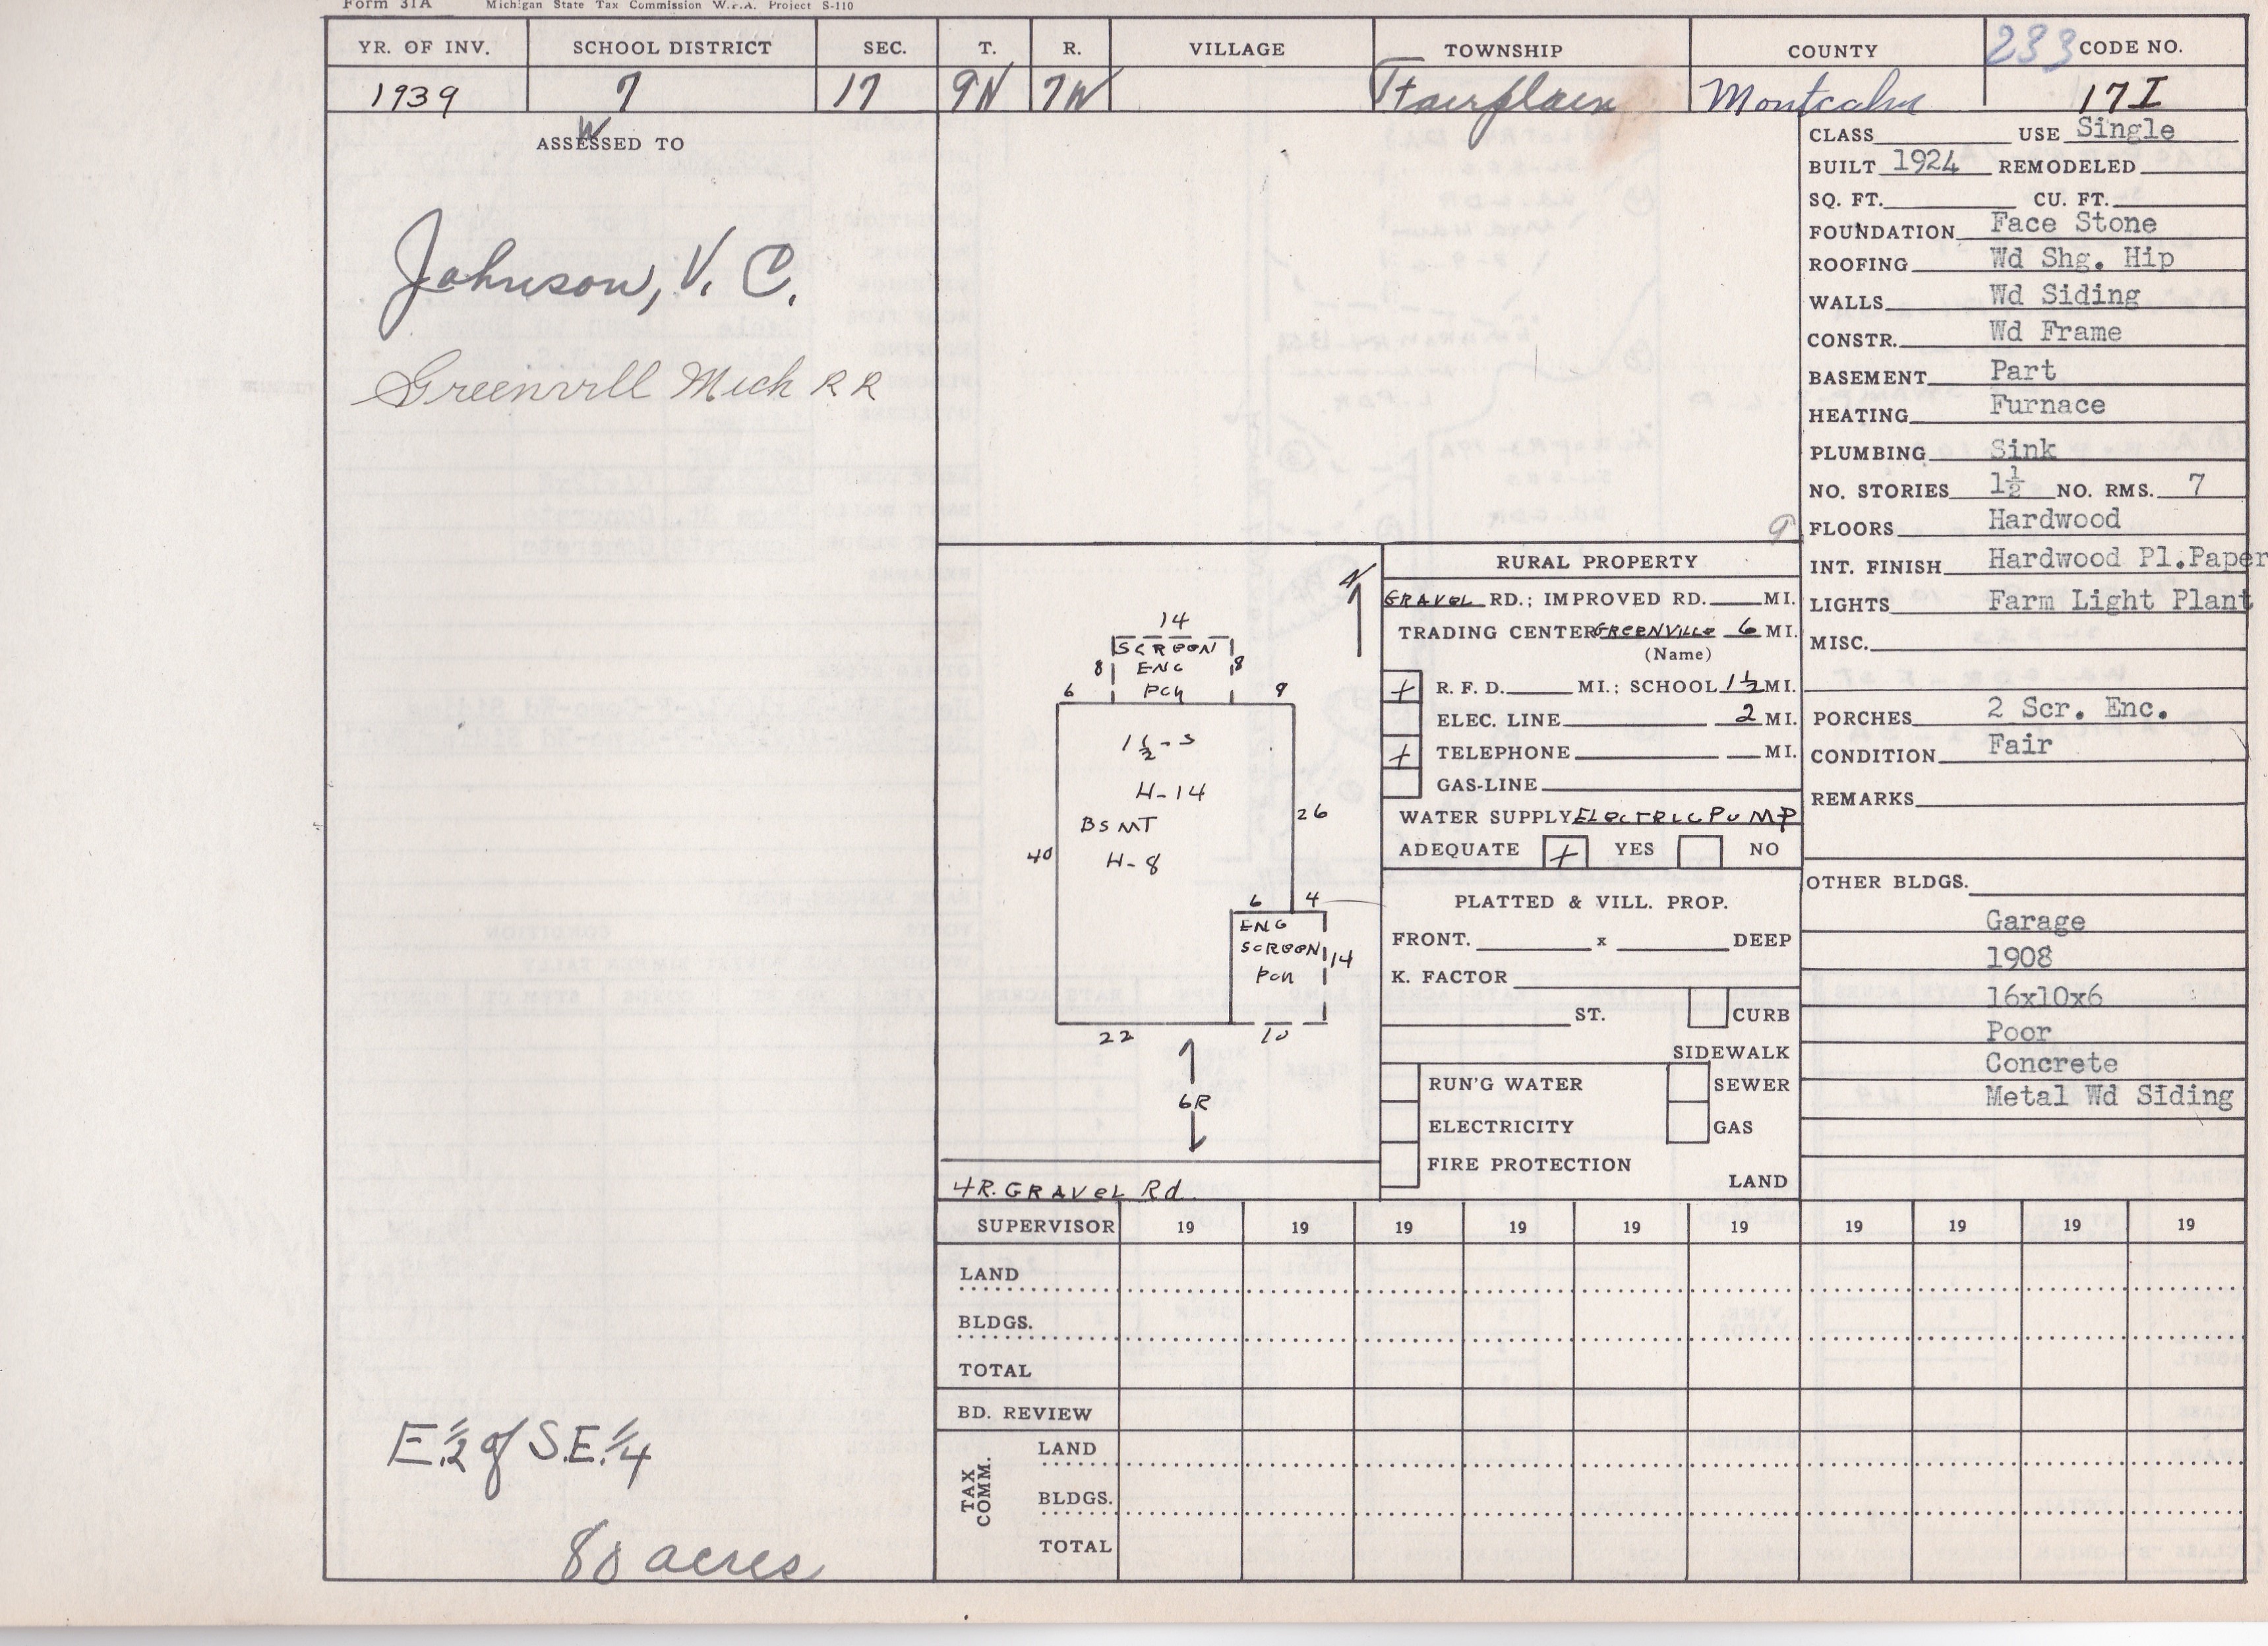 Form 31A Michigan State Tax Commission W.P.A. Project S-110
YR. OF INV. SCHOOL DISTRICT SEC. T. R. VILLAGE TOWNSHIP COUNTY 233 CODE NO.
1939 7 17 9N 7W Fairplain Montcalm 17I
W
ASSESSED TO
Johnson, V. C.
Greenvill Mich R R
E.1/2 of S.E.1/4
80 acres
N
14
SCREEN
8 ENC 8
PCH
6 9
1 1/2 - S
H-14
BSMT
H-8
40 26
6 4
ENC
SCREEN
PCH
14
22 10
6R
4R. GRAVEL Rd.
RURAL PROPERTY
GRAVEL RD.; IMPROVED RD. MI.
TRADING CENTER GREENVILLE 6 MI.
(Name)
+ R. F. D. MI.; SCHOOL 1 1/2 MI.
ELEC. LINE 2 MI.
+ TELEPHONE MI.
GAS-LINE
WATER SUPPLY ELECTRIC PUMP
ADEQUATE + YES NO
PLATTED & VILL. PROP.
FRONT. x DEEP
K. FACTOR
ST. CURB
SIDEWALK
RUN'G WATER SEWER
ELECTRICITY GAS
FIRE PROTECTION
LAND
CLASS USE Single
BUILT 1924 REMODELED
SQ. FT. CU. FT.
FOUNDATION Face Stone
ROOFING Wd Shg. Hip
WALLS Wd Siding
CONSTR. Wd Frame
BASEMENT Part
HEATING Furnace
PLUMBING Sink
NO. STORIES 1½ NO. RMS. 7
9 FLOORS Hardwood
INT. FINISH Hardwood Pl.Paper
LIGHTS Farm Light Plant
MISC.
PORCHES 2 Scr. Enc.
CONDITION Fair
REMARKS
OTHER BLDGS.
Garage
1908
16x10x6
Poor
Concrete
Metal Wd Siding
SUPERVISOR 19 19 19 19 19 19 19 19 19 19
LAND
BLDGS.
TOTAL
BD. REVIEW
TAX COMM.
LAND
BLDGS.
TOTAL